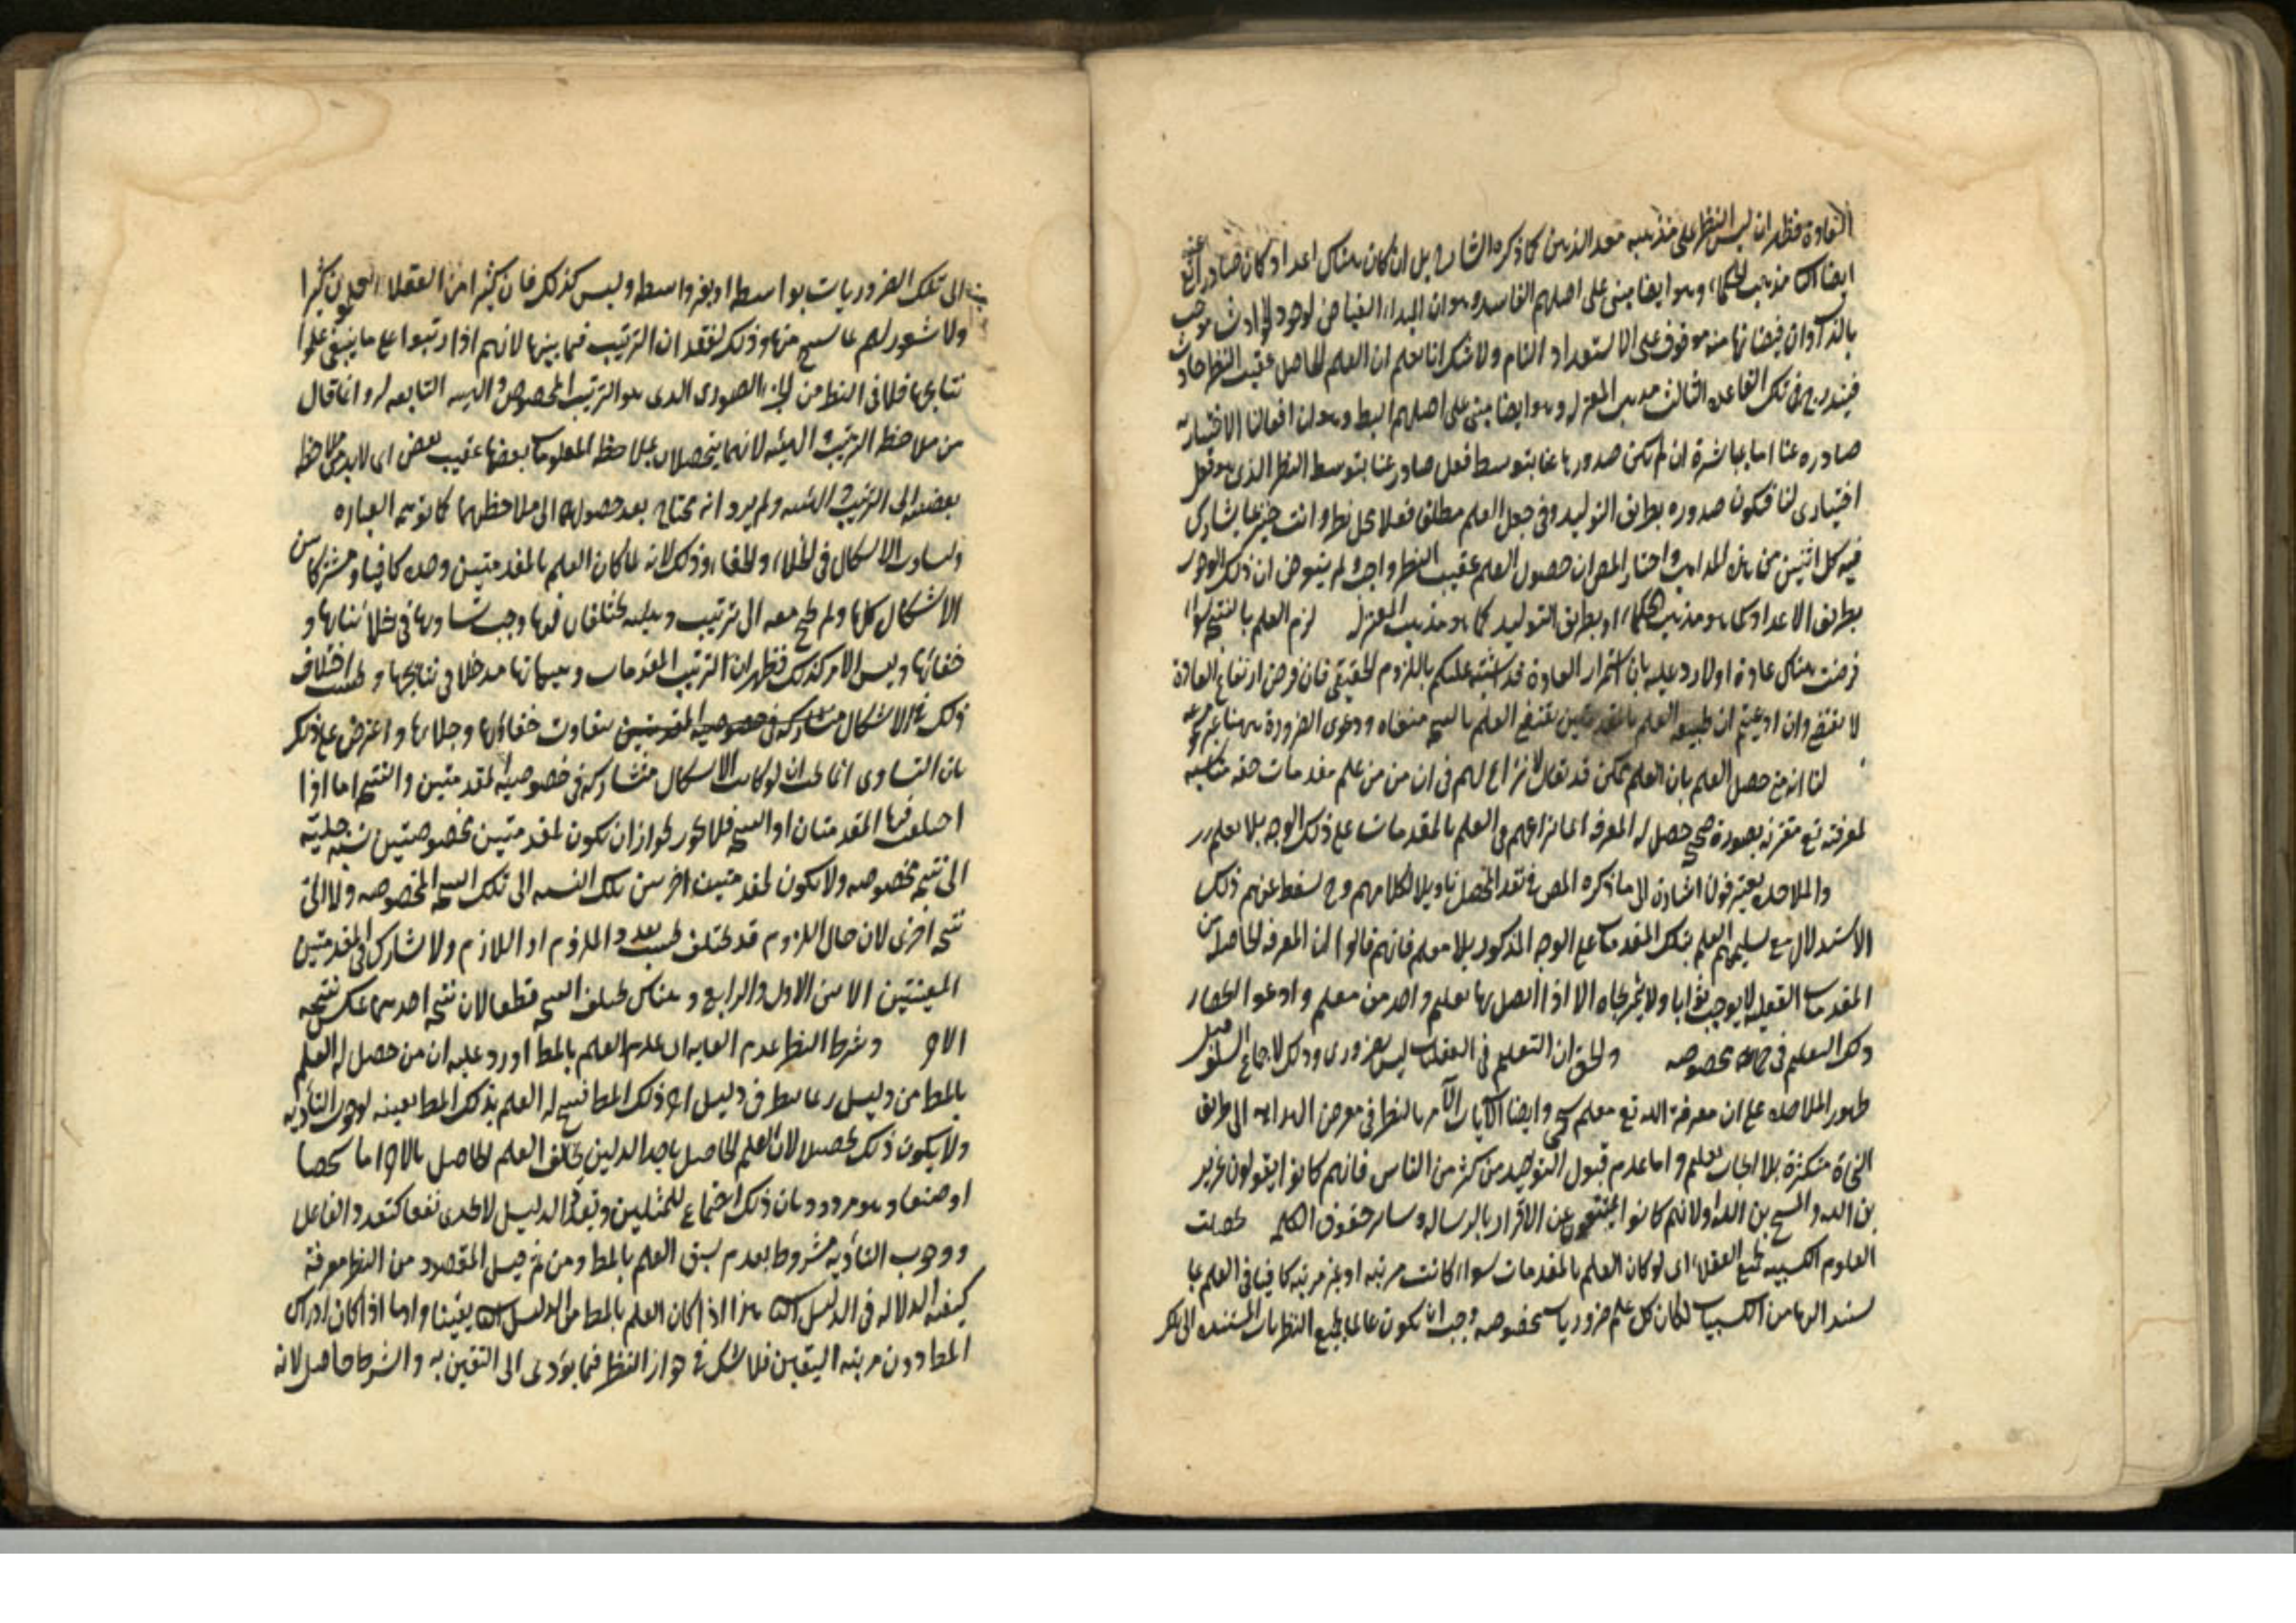 العادة فظهر ان ليس النظر على مذهبه معد الذهن كما ذكره الشارح بل ان كان هناك اعداد كان صادرا عنه تع
ايضا الثانى مذهب الحكماء وهو ايضا مبنى على اصلهم الفاسد وهو ان المبداء الفياض لوجود الحوادث موجب
بالذات وان فيضانها منه موقوف على الاستعداد التام ولا شك انا نعلم ان العلم الحاصل عقيب النظر حادث
فيندرج فى تلك القاعدة الثالث مذهب المعتزله وهو ايضا مبنى على اصلهم الباطل وهو ان افعالنا الاختيارية
صادره عنا اما مباشرة ان لم يكن صدورها عنا بتوسط فعل صادر عنا بتوسط النظر الذى هو فعل
اختيارى لنا فيكون صدوره بطريق التوليد وفى جعل العلم مطلقا فعلا محل نظر وانت خبير بما يشارك
فيه كل اثنين من هذه المذاهب واختار المص ان حصول العلم عقيب النظر واجب ولم يتعرض ان ذلك الوجوب
بطريق الاعداد كما هو مذهب الحكماء او بطريق التوليد كما هو مذهب المعتزله لزم العلم بالنتيجه سواء
فرضت هناك عادة اولا رد عليه بان استمرار العادة قد اشتبه عليكم باللزوم الحقيقى فان فرض ارتفاع العادة
لا يقتضى وان ادعيتم ان طبيعه العلم بالمقدمتين يقتضى العلم بالنتيجه منعناه ودعوى الضرورة ههنا غير
لنا انه متى حصل العلم بان العلم ممكن قد يقال لا نزاع لهم فى ان من علم مقدمات حقه مناسبه
لمعرفته تع مقترنه بصورة صحيحه حصل له المعرفه انما نزاعهم فى العلم بالمقدمات على ذلك الوجه بلا معلم
والملاحده يعترفون اشارة الى ما ذكره المص فى نقد المحصل تاويلا لكلامهم وح يسقط عنهم ذلك
الاستدلال مع تسليمهم العلم بتلك المقدمات على الوجه المذكور بلا معلم فانهم قالوا ان المعرفه الحاصله من
المقدمات العقليه لا يوجب ثوابا ولا يثمر نجاه الا اذا اتصل بها تعليم واحد من معلم وادعوا انحصار
ذلك التعليم فى جماعه مخصوصه والحق ان التعليم فى العقليات ليس بضرورى وذلك لاجماع السلف قبل
ظهور الملاحده على ان معرفة الله تع بلا معلم وايضا الآيات الآمرة بالنظر فى معرض الهدايه الى طريق
النجاة متكثرة بلا ايجاب تعليم واما عدم قبول التوحيد من كثير من الناس فانهم كانوا يقولون عزير
بن الله والمسيح بن الله او لانهم كانوا يمتنعون عن الاقرار بالرساله وساير حقوق الكلمه لحصلت
العلوم الكسبيه لجميع العقلاء اى لو كان العلم بالمقدمات سواء كانت مرتبه او غير مرتبه كافيا فى العلم بما
يستند اليها من الكسبيات لكان كل من علم ضروريات مخصوصه وجب ان يكون عالما بجميع النظريات المستنده الى تلك
الى تلك الضروريات بواسطه او بغير واسطه وليس كذلك فان كثيرا من العقلاء يعلمون كثيرا
ولا شعور لهم بما ينتج منها وذلك لفقدان الترتيب فيما بينها لانهم اذا رتبوا على ما ينبغى علموا
نتايجها فلا بد فى النظر من الجزء الصورى الذى هو الترتيب المخصوص والهيئه التابعه له وانما قال
من ملاحظه الترتيب والهيئه لانهما يحصلان بملاحظه المعلومات بعضها عقيب بعض اى لا بد من ملاحظه
الى الترتيب والهيئه ولم يرد انه يحتاج بعد حصولهما الى ملاحظتهما كما توهمه العباره
ولساوت الاشكال فى الجلاء والخفاء وذلك لانه لما كان العلم بالمقدمتين وحده كافيا ومشتركا بين
الاشكال كلها ولم يحتج معه الى ترتيب وهيئه يختلفان فيها وجب تساويها فى جلاء نتايجها و
خفائها وليس الامر كذلك فظهر ان لترتيب المقدمات وهيئاتها مدخلا فى نتايجها وبحسب اختلاف
ذلك فى الاشكال يتفاوت خفاؤها وجلاؤها واعترض على ذلك
بان التساوى انما يجب ان لو كانت الاشكال متشاركه فى خصوصيه المقدمتين والنتيجه اما اذا
اختلفت فيها المقدمتان او النتيجه فلا لجواز ان يكون لمقدمتين مخصوصتين نسبه جليه
الى نتيجه مخصوصه ولا يكون لمقدمتين اخريين تلك النسبه الى تلك النتيجه المخصوصه ولا الى
نتيجه اخرى لان حال اللزوم قد يختلف بحسب تعدد الملزوم او اللازم ولا تشارك فى المقدمتين
المعينتين الا بين الاول والرابع وهناك تختلف النتيجه قطعا لان نتيجه احدهما عكس نتيجه
الاخر وشرط النظر عدم الغايه اى عدم العلم بالمط اورد عليه ان من حصل له العلم
بالمط من دليل ربما ينظر فى دليل اخر لذلك المط فينتج له العلم بذلك المط بعينه لوجوب التأديه
ولا يكون ذلك تحصيل لان العلم الحاصل باحد الدليلين يخالف العلم الحاصل بالاخر اما شخصا
او صنفا وهو مردود بان ذلك اجتماع للمثلين وتعدد الدليل لا يجدى نفعا كتعدد الفاعل
ووجوب التأديه مشروط بعدم سبق العلم بالمط ومن ثم قيل المقصود من النظر معرفة
كيفيه الدلاله فى الدليل الثانى هذا اذا كان العلم بالمط من الدليل يقينا واما اذا كان ادراك
المط دون مرتبه اليقين فلا شك فى جواز النظر فيما يؤدى الى اليقين به والشرط حاصل لانه